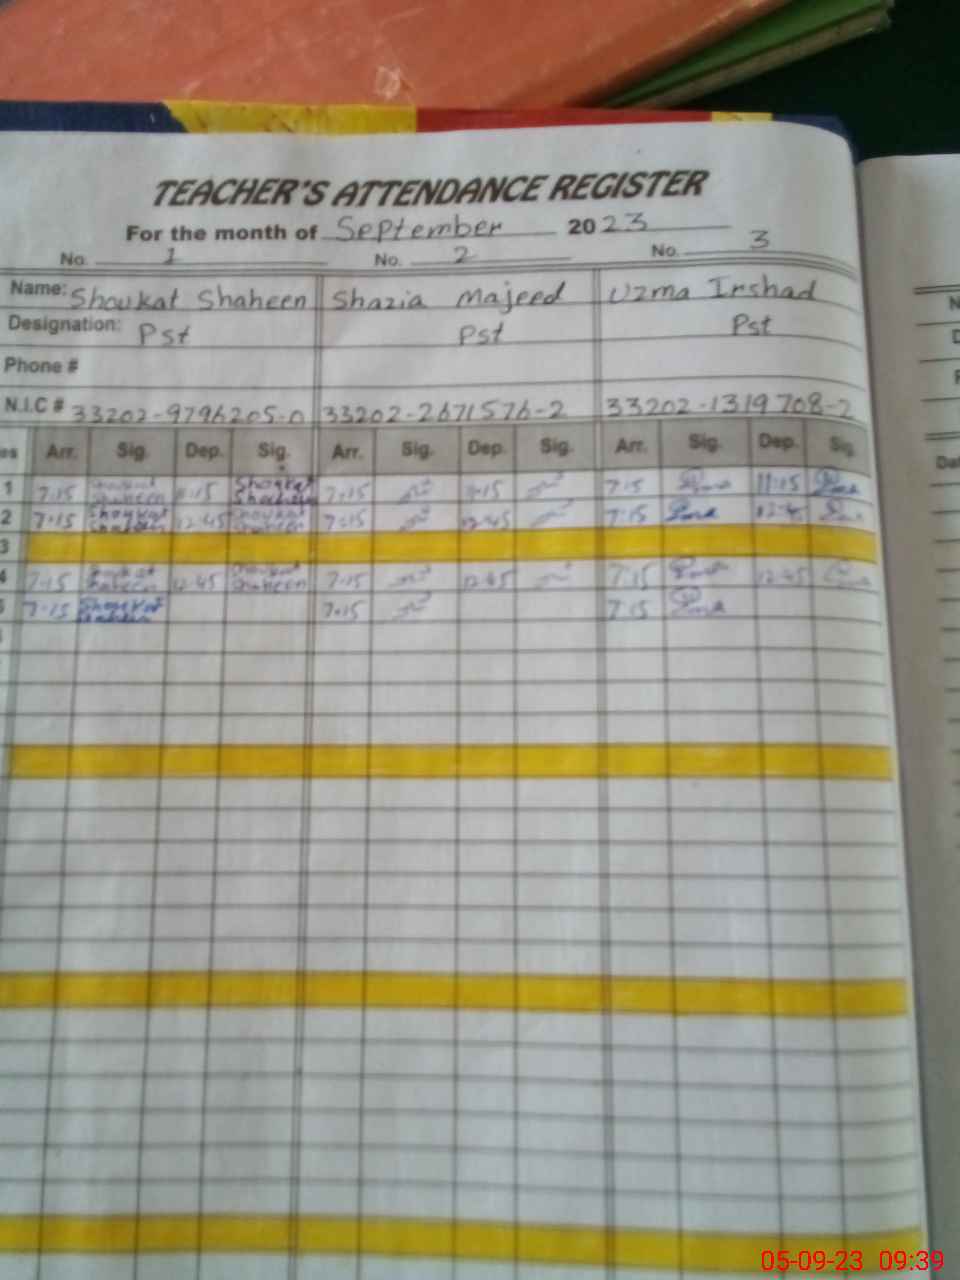 TEACHER'S ATTENDANCE REGISTER
For the month of September 2023
No. 1 No. 2 No. 3
Name: Shoukat Shaheen Shazia Majeed Uzma Irshad
Designation: Pst Pst Pst
Phone #
N.I.C # 33202-9796205-0 33202-2671576-2 33202-1319708-2
es Arr. Sig. Dep. Sig. Arr. Sig. Dep. Sig. Arr. Sig. Dep. Sig.
1 7:15 Shoukat Shaheen 11:15 Shoukat Shaheen 7:15 11:15 7:15 11:15
2 7:15 Shoukat Shaheen 12:45 Shoukat Shaheen 7:15 12:45 7:15 12:45
3
4 7:15 Shoukat Shaheen 12:45 Shoukat Shaheen 7:15 12:45 7:15 12:45
5 7:15 Shoukat Shaheen 7:15 7:15
05-09-23 09:39